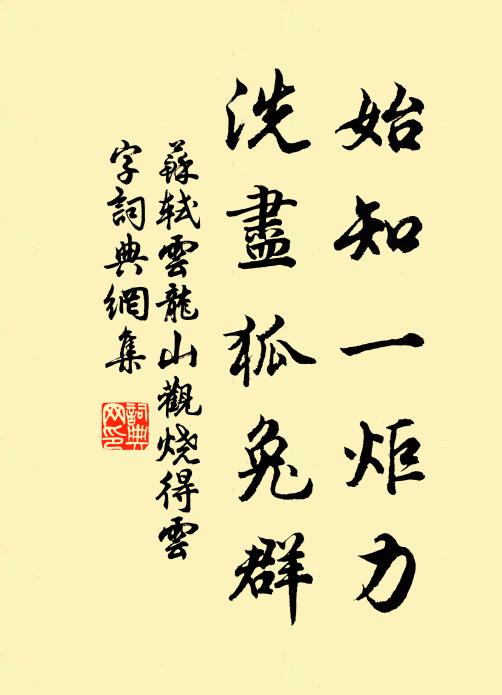 始知一炬力
洗盡狐兔群
蘇軾雲龍山觀烧得雲
字詞典網集
詞典
网印